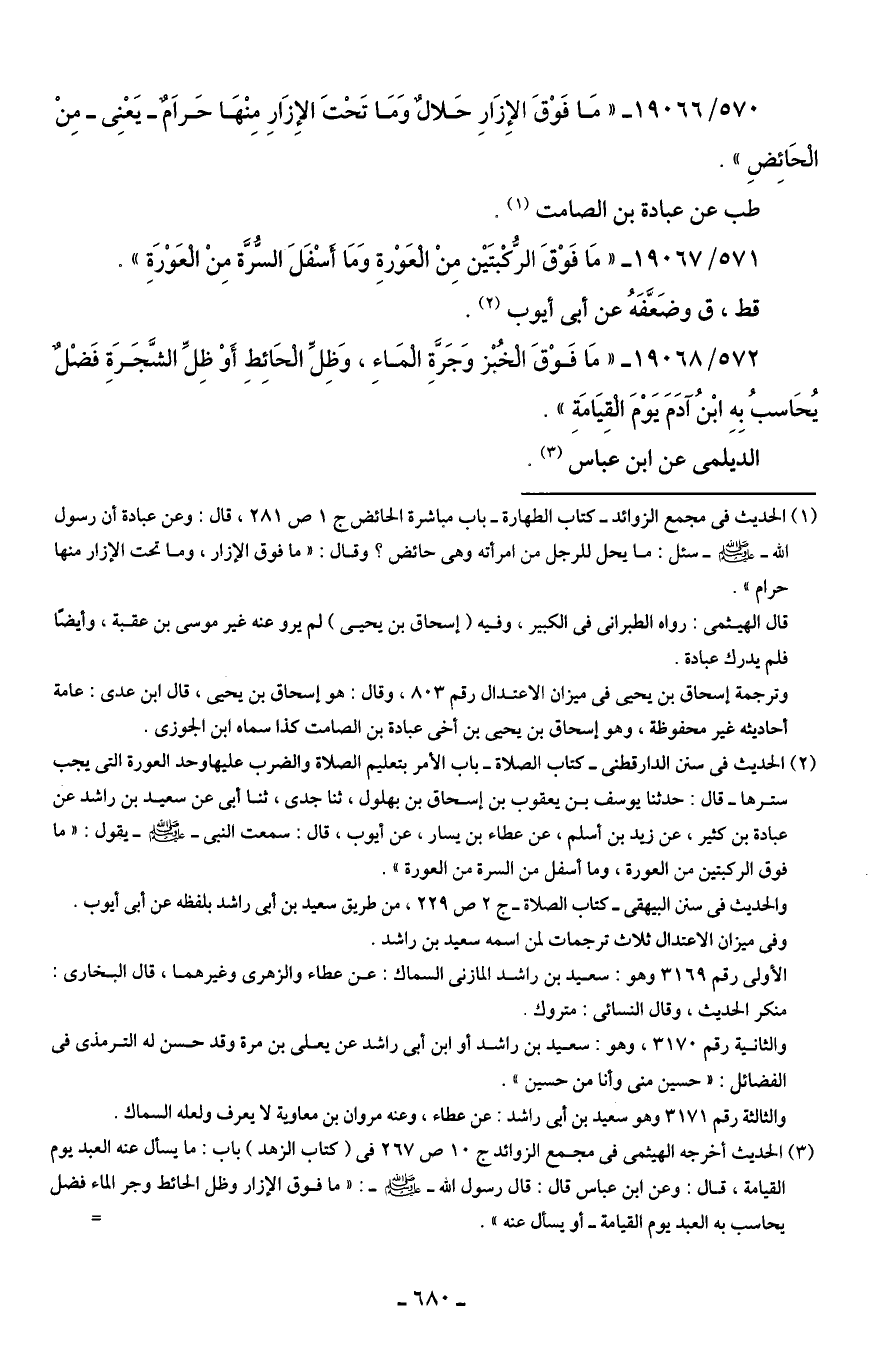 ٥٧٠/ ١٩٠٦٦ـ « مَـا فَوْقَ الإِزَارِ حَـلالٌ وَمَـا تَحْتَ الإِزَارِ مِنْهَـا حَـرامٌ ـ يَعْنِى ـ مِنْ
الْحَائِضِ » .
طب عن عبادة بن الصامت (١) .
٥٧١/ ١٩٠٦٧ـ « مَا فَوْقَ الرُّكْبَتَيْنِ مِنْ الْعَوْرةِ وَمَا أَسْفَلَ السُّرَّةِ مِنْ الْعَوْرَةِ » .
قط ، ق وضَعَّفَهُ عن أبى أيوب (٢) .
٥٧٢/ ١٩٠٦٨ـ « مَا فَـوْقَ الْخُبْزِ وَجَرَّةِ الْمَـاءِ ، وَظِلِّ الْحَائِطِ أَوْ ظِلِّ الشَّجَـرَةِ فَضْلٌ
يُحَاسبُ بِهِ ابْنُ آدَمَ يَوْمَ الْقِيَامَةِ » .
الديلمى عن ابن عباس (٣) .
(١) الحديث فى مجمع الزوائد ـ كتاب الطهارة ـ باب مباشرة الحائض ج ١ ص ٢٨١ ، قال : وعن عبادة أن رسول
الله ـ ﷺ ـ سئل : مـا يحل للرجل من امرأته وهى حائض ؟ وقـال : « ما فوق الإزار ، ومـا تحت الإزار منها
حرام » .
قال الهيـثمى : رواه الطبرانى فى الكبير ، وفـيه ( إسحاق بن يحيـى ) لم يرو عنه غير موسى بن عقـبة ، وأيضًا
فلم يدرك عبادة .
وترجمة إسحاق بن يحيى فى ميزان الاعـتدال رقم ٨٠٣ ، وقال : هو إسحاق بن يحيى ، قال ابن عدى : عامة
أحاديثه غير محفوظة ، وهو إسحاق بن يحيى بن أخى عبادة بن الصامت كذا سماه ابن الجوزى .
(٢) الحديث فى سنن الدارقطنى ـ كتاب الصلاة ـ باب الأمر بتعليم الصلاة والضرب عليهاوحد العورة التى يجب
ستـرها ـ قال : حدثنا يوسف بـن يعقوب بن إسـحاق بن بهلول ، ثنا جدى ، ثنـا أبى عن سعيـد بن راشد عن
عبادة بن كثير ، عن زيد بن أسلم ، عن عطاء بن يسار ، عن أيوب ، قال : سمعت النبى ـ ﷺ ـ يقول : « ما
فوق الركبتين من العورة ، وما أسفل من السرة من العورة » .
والحديث فى سنن البيهقى ـ كتاب الصلاة ـ ج ٢ ص ٢٢٩ ، من طريق سعيد بن أبى راشد بلفظه عن أبى أيوب .
وفى ميزان الاعتدال ثلاث ترجمات لمن اسمه سعيد بن راشد .
الأولى رقم ٣١٦٩ وهو : سعـيد بن راشـد المازنى السماك : عـن عطاء والزهرى وغيرهمـا ، قال البـخارى :
منكر الحديث ، وقال النسائى : متروك .
والثانـية رقم ٣١٧٠ ، وهو : سعـيد بن راشـد أو ابن أبى راشد عن يعـلى بن مرة وقد حـسن له التـرمذى فى
الفضائل : « حسين منى وأنا من حسين » .
والثالثة رقم ٣١٧١ وهو سعيد بن أبى راشد : عن عطاء ، وعنه مروان بن معاوية لا يعرف ولعله السماك .
(٣) الحديث أخرجه الهيثمى فى مجـمع الزوائد ج ١٠ ص ٢٦٧ فى ( كتاب الزهد ) باب : ما يسأل عنه العبد يوم
القيامة ، قـال : وعن ابن عباس قال : قال رسول الله ـ ﷺ ـ : « ما فـوق الإزار وظل الحائط وجر الماء فضل
يحاسب به العبد يوم القيامة ـ أو يسأل عنه » . =
ـ ٦٨٠ ـ